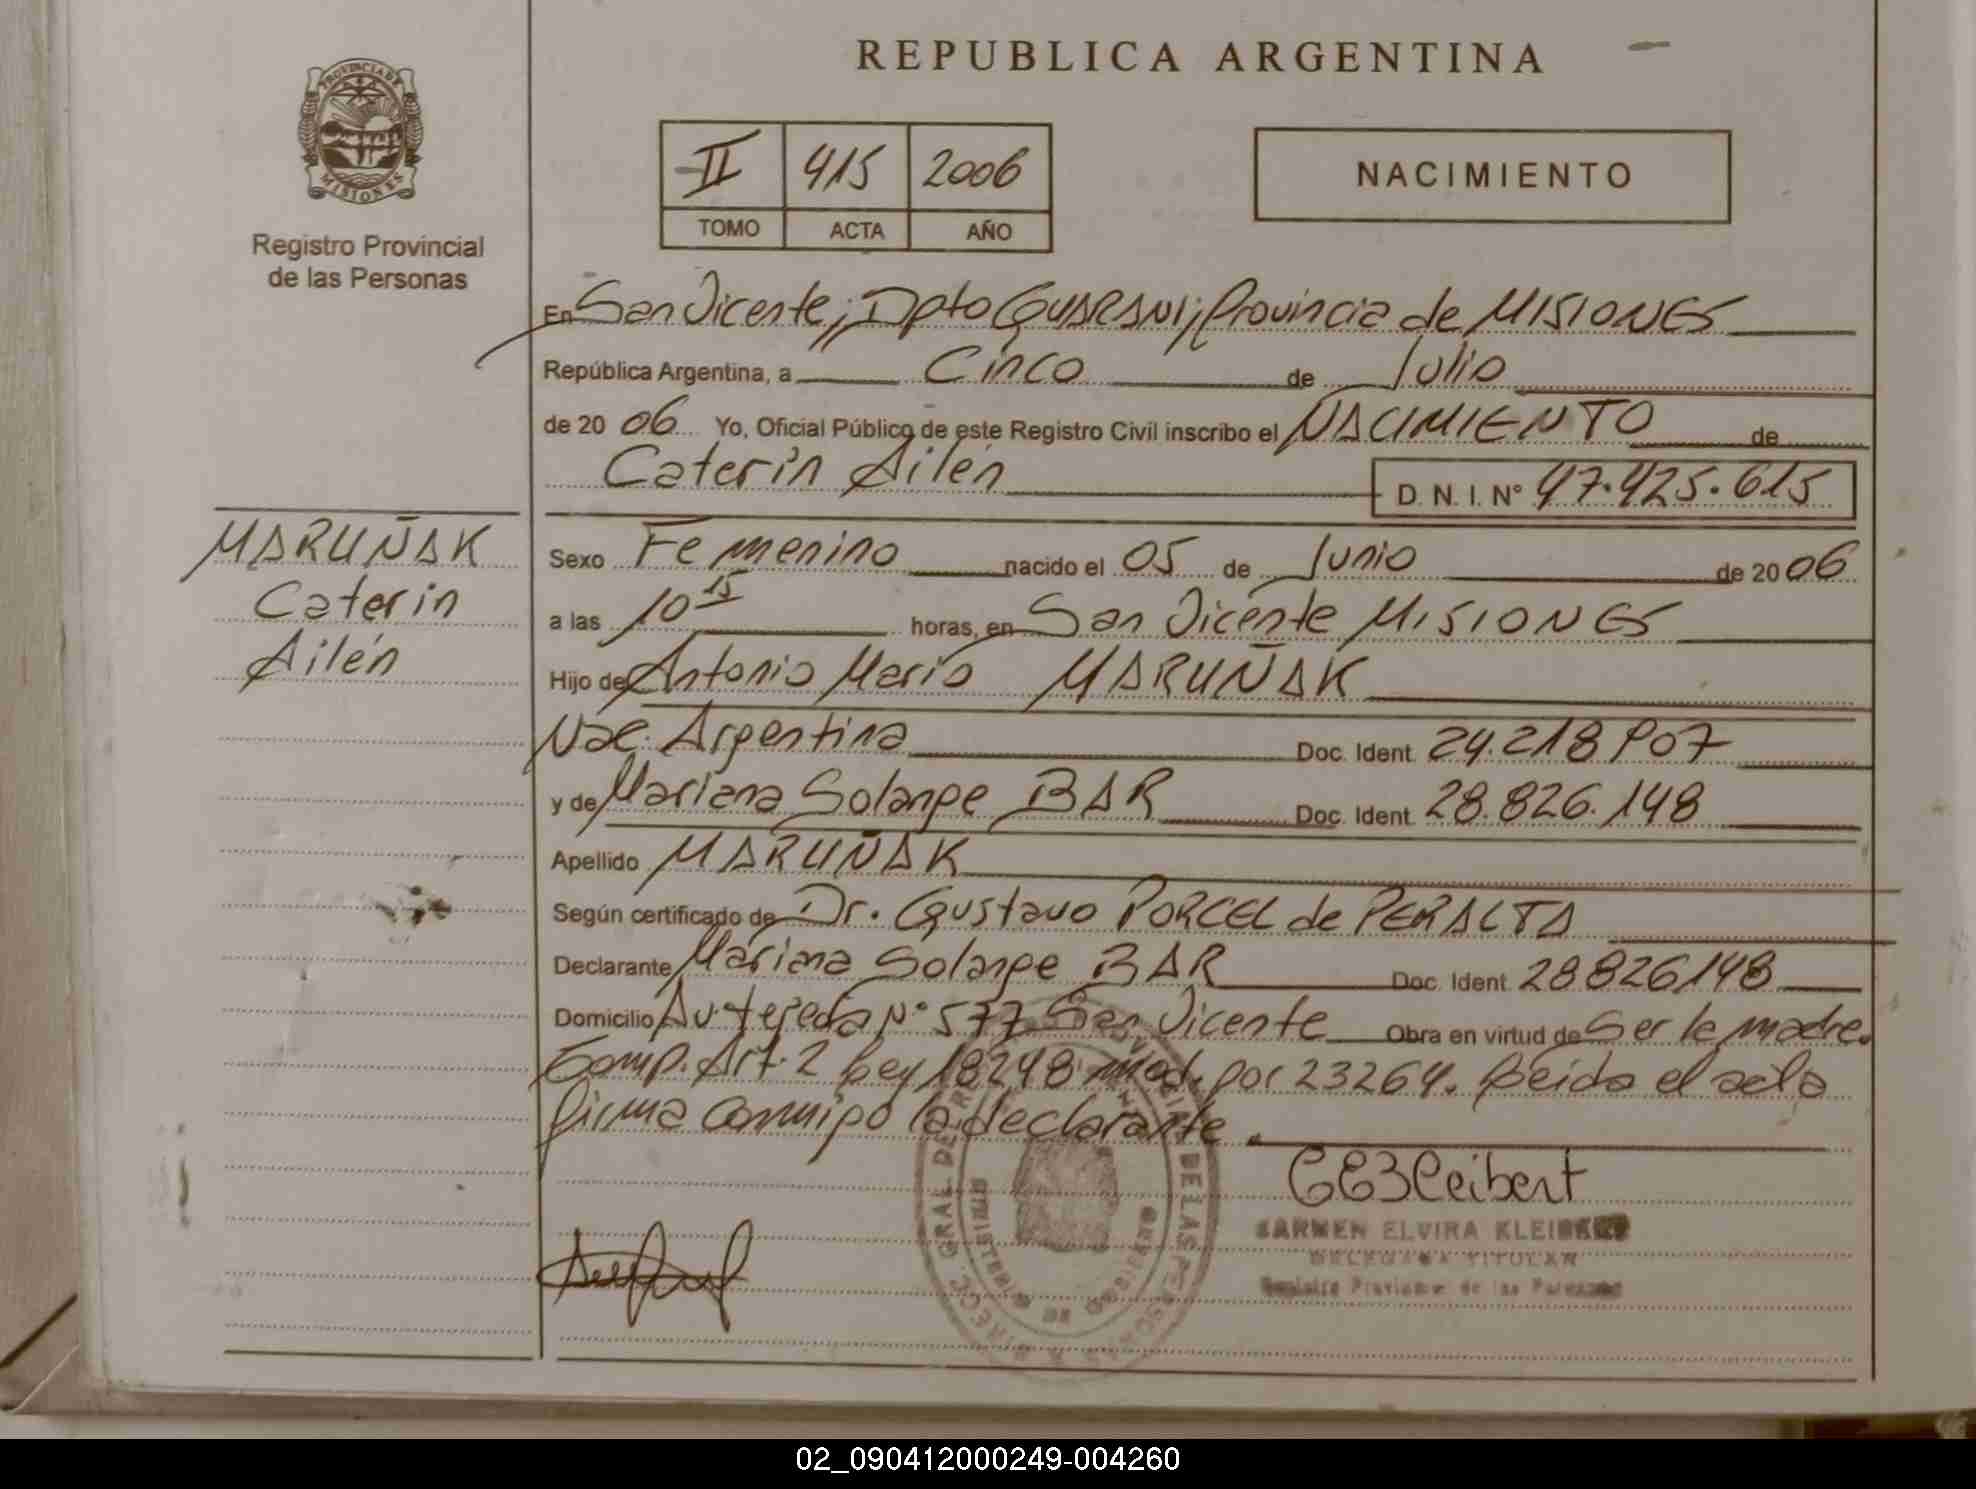 REPUBLICA ARGENTINA
PROVINCIA DE
MISIONES
Registro Provincial
de las Personas
II 415 2006
TOMO ACTA AÑO
NACIMIENTO
En San Vicente; Dpto GUARANI; Provincia de MISIONES
República Argentina, a Cinco de Julio
de 2006 Yo, Oficial Público de este Registro Civil inscribo el NACIMIENTO de
Caterin Ailén D. N. I. N° 47.425.615
MARUÑAK
Caterin
Ailén
Sexo Femenino nacido el 05 de Junio de 2006
a las 10 15 horas, en San Vicente MISIONES
Hijo de Antonio Mario MARUÑAK
Nac. Argentina Doc. Ident. 24.218.907
y de Mariana Solange BAR Doc. Ident. 28.826.148
Apellido MARUÑAK
Según certificado de Dr. Gustavo PORCEL de PERALTA
Declarante Mariana Solange BAR Doc. Ident. 28826148
Domicilio Av. Tejeda N° 577 San Vicente Obra en virtud de Ser la madre.
Comp. Art. 2 Ley 18248 mod. por 23264. Leida el acta
firma conmigo la declarante.
CEKleibert
CARMEN ELVIRA KLEIBERT
DELEGADA TITULAR
Registro Provincial de las Personas
DIRECC. GRAL. DEL REG. PROVINCIAL DE LAS PERSONAS
MINISTERIO DE GOBIERNO
02_090412000249-004260